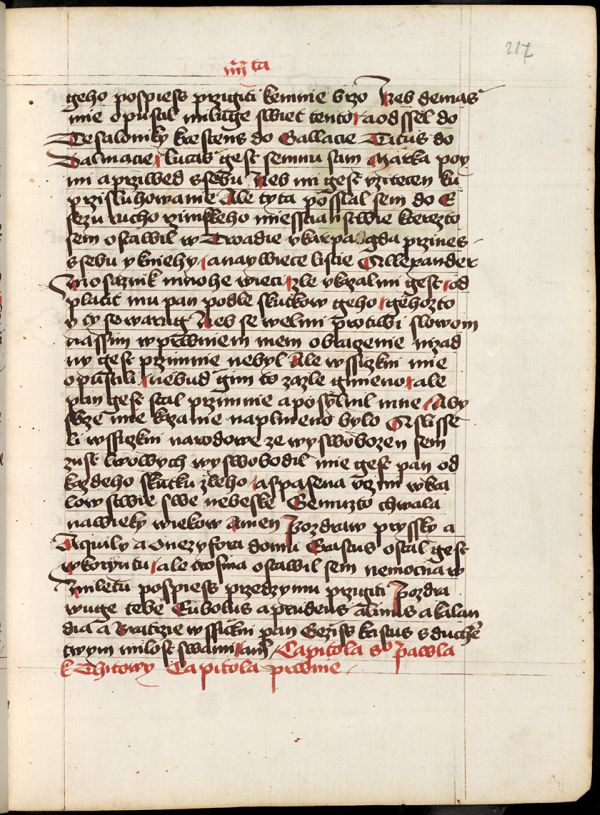 217
iiii ta
geho pospiess przigiti kemnie brzo Neb demas
mie opustil miluge swiet tento a odssel do
Tesaloniky krestens do Gallacie Titus do
Dalmacie lucas gest semnu sam Marka poy
mi a prziwed s sebu Neb mi gest vzitecen ku
przisluhowanie Ale tyta posslal sem do E
fezu rucho rzimskeho miesstianstwie kterezto
sem ostawil w Troadie v karpa gda przines
s sebu y kniehy a naywiece listie Allexander
mosaznik mnohe wieci zle vkazal mi gest od
platiz mu pan podle skutkow geho gehozto
y ty se warug Neb se welmi protiwi slowom
nassim w prwniem mem obrazenie nizad
ny gest przi mnie nebyl Ale wssiczkni mie
opustili nebud gim to za zle gmieno ale
pan gest stal przi mnie a posylnil mne Aby
skrze mie kazanie naplneno bylo A slisse
li wssiczkni narodowe ze wyswobozen sem
z ust lwowych wyswobodil mie gest pan od
kazdeho skutku zleho a spasena vczini w kra
lowstwie swe nebeske Gemuzto chwala
na wieky wiekow Amen Pozdraw pryssky a
Aquily a onezyfora domu Erastus ostal gest
w korintu ale trofima ostawil sem nemocna w
Miletu pospiess przed zymu przigiti Pozdra
wuge tebe Eubolus a prudens a linus a kalau
dia a bratrzie wssickni pan Geziss kristus s duchem
twym milost s wami amen Capitola swateho Pawla
k Thitowy Capitola prwnie